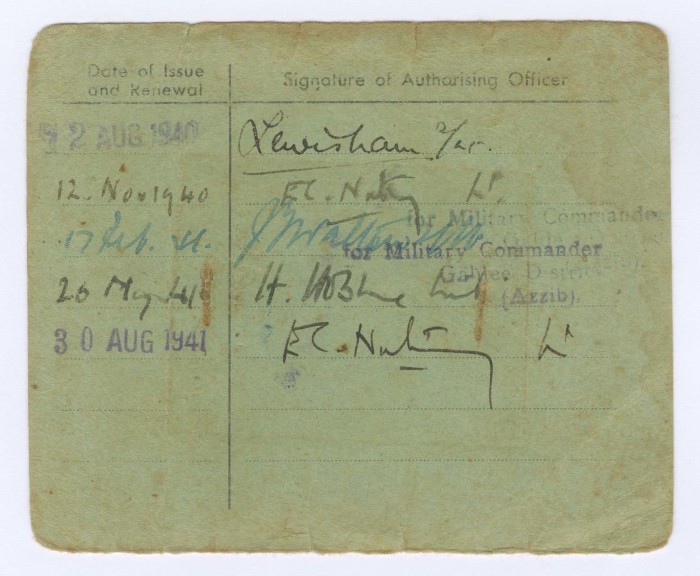 Date of Issue
and Renewal
Signature of Authorising Officer
2 AUG 1940
Lewisham
12. Nov 1940
E.C. Lt.
for Military Commander
17 Feb. 41.
for Military Commander
Galilee District
20 May 41
H.
(Azzib).
30 AUG 1941
E.C. Lt